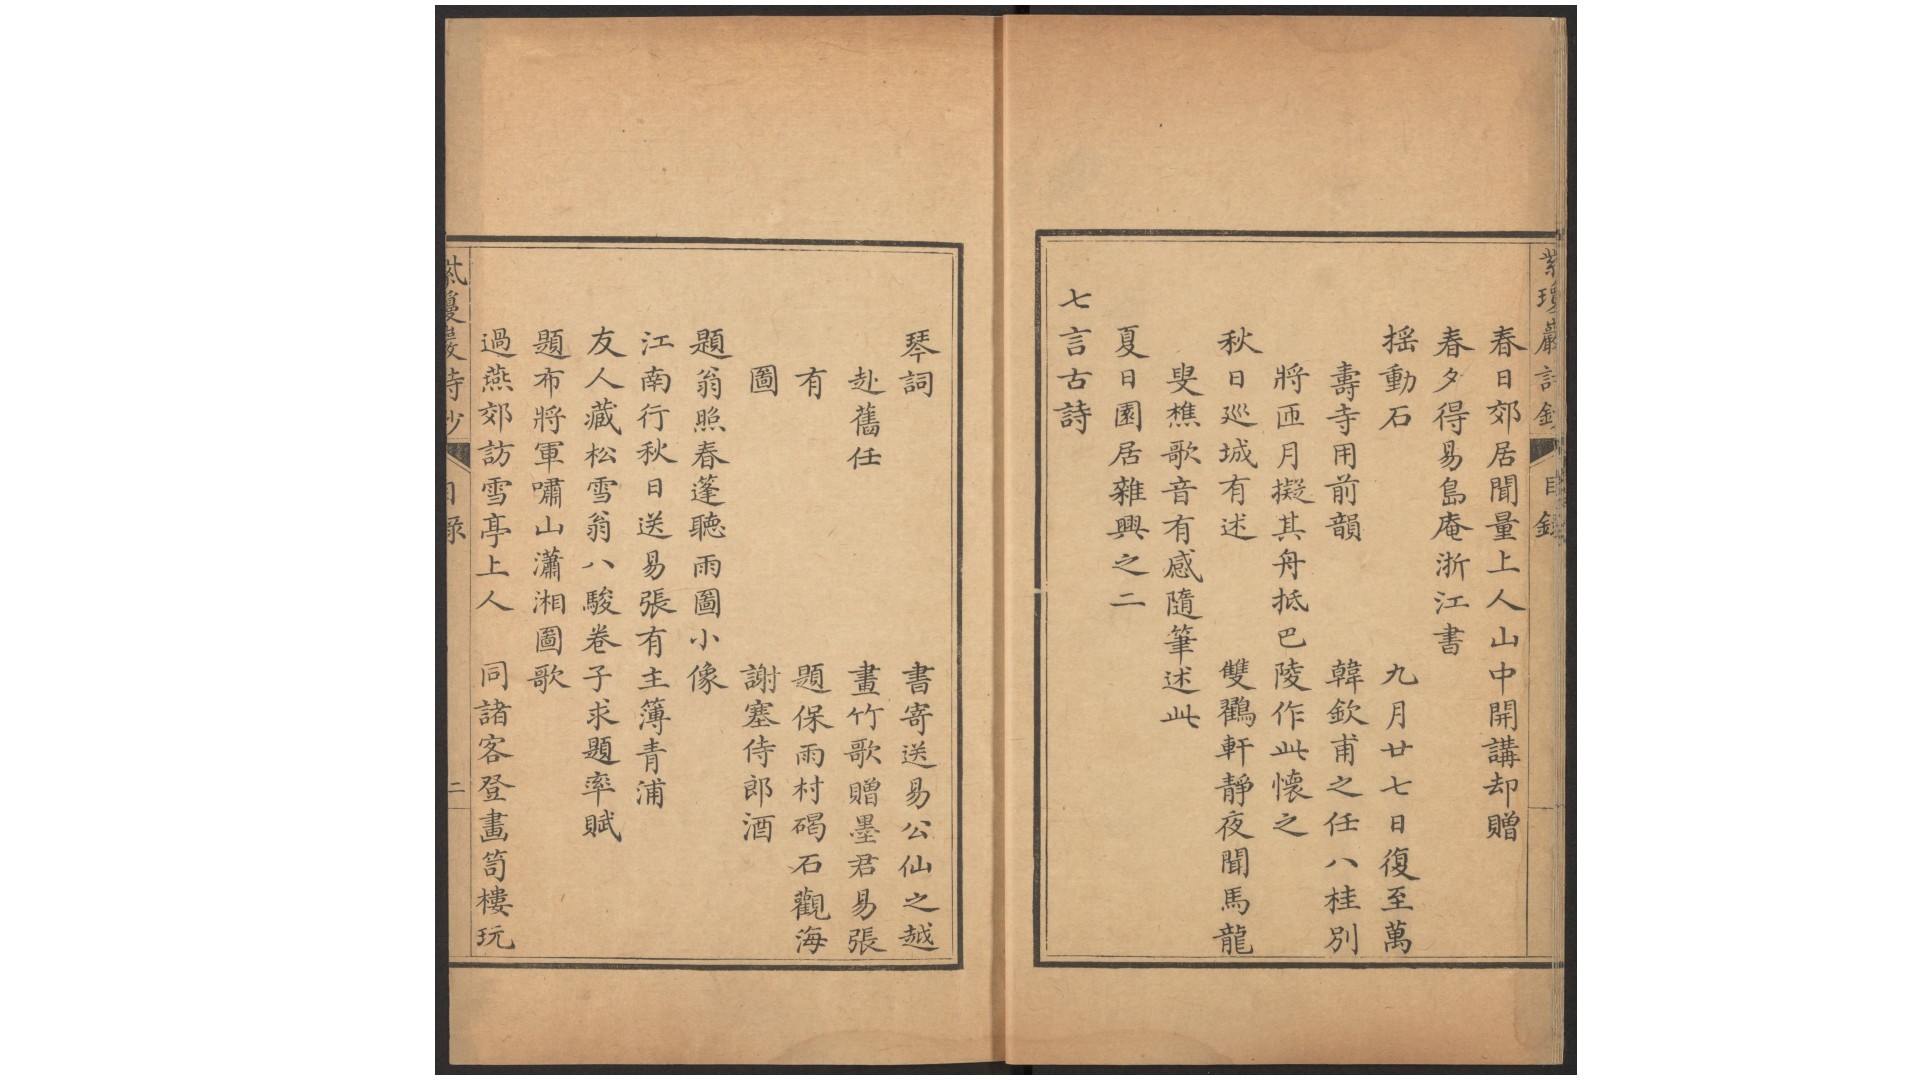 紫瓊巖詩鈔
目錄
春日郊居聞量上人山中開講却贈
春夕得易島庵浙江書
搖動石　九月廿七日復至萬
壽寺用前韻　韓欽甫之任八桂別
將匝月擬其舟抵巴陵作此懷之
秋日巡城有述　雙鸛軒靜夜聞馬龍
叟樵歌音有感隨筆述此
夏日園居雜興之二
七言古詩
琴詞　書寄送易公仙之越
赴舊任　畫竹歌贈墨君易張
有　題保雨村碣石觀海
圖　謝塞侍郎酒
題翁照春蓬聽雨圖小像
江南行秋日送易張有主簿青浦
友人藏松雪翁八駿卷子求題率賦
題布將軍嘯山瀟湘圖歌
過燕郊訪雪亭上人　同諸客登畫笥樓玩
紫瓊巖詩鈔
目錄
二